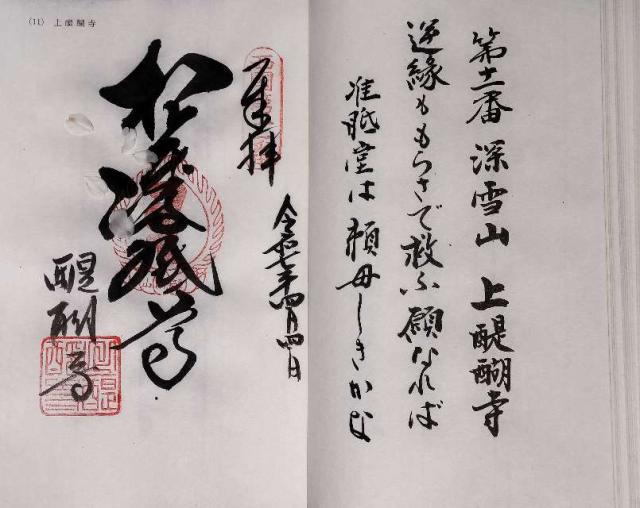 第十一番 深雪山 上醍醐寺
逆縁ももらさで救ふ願なれば
准胝堂は頼母しきかな
(11) 上醍醐寺
奉拝
令和七年四月四日
醍醐寺